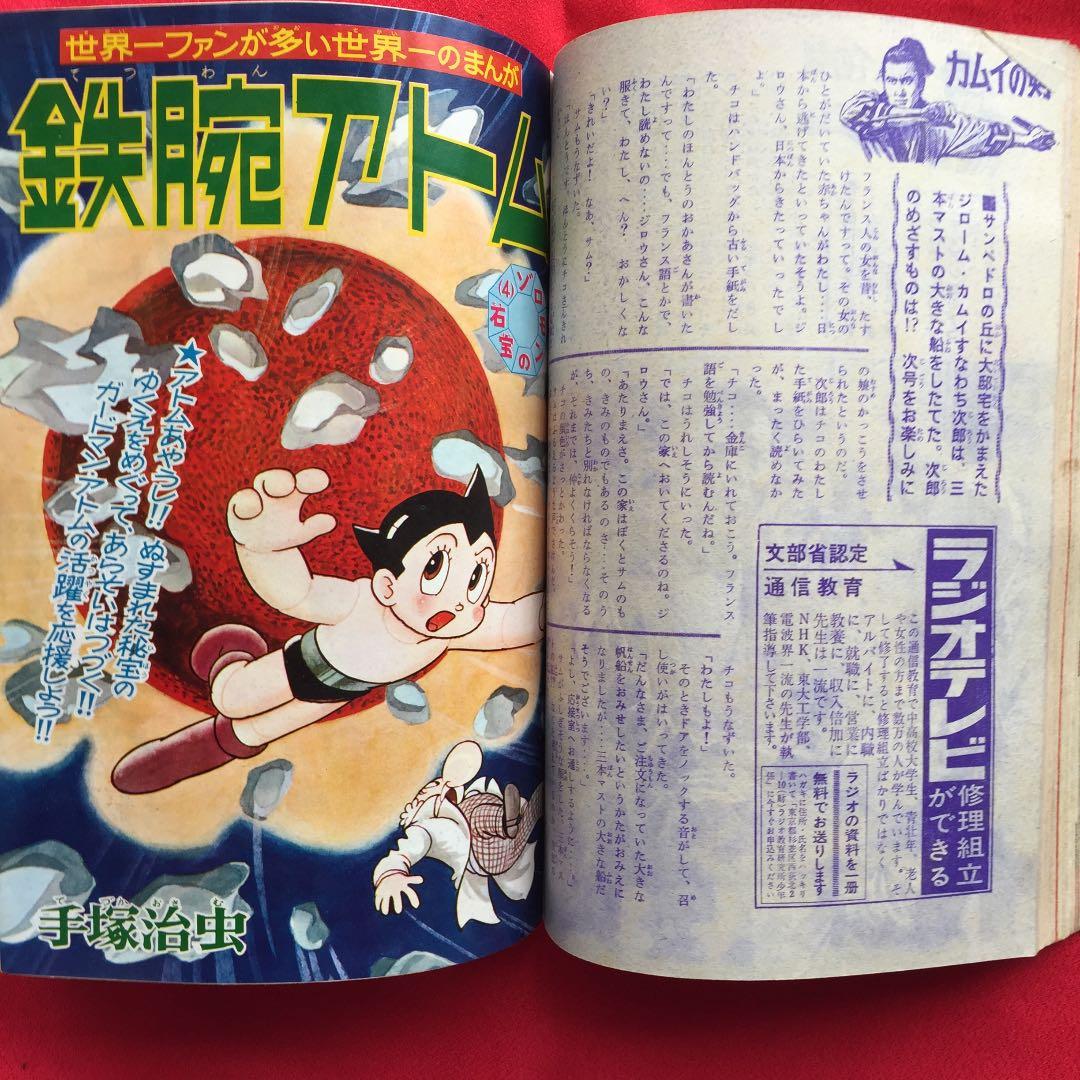 世界一ファンが多い世界一のまんが
鉄腕アトム
ゾロモンの
宝石
(4)
★アトムあやうし!! ぬすまれた秘宝の
ゆくえをめぐって あらそいはつづく!!
ガードマン・アトムの活躍を応援しよう!!
手塚治虫
てづかおさむ
カムイの
■サンペドロの丘に大邸宅をかまえた
ジローム、カムイすなわち次郎は、三
本マストの大きな船をしたてた。次郎
のめざすものは!? 次号をお楽しみに
フランス人の女を昔、たす
けたんですって。その女の
ひとがだいていた赤ちゃんがわたし…日
本から逃げてきたといっていたそうよ。ジ
ロウさん、日本からきたっていったでし
ょ。」
チコはハンドバッグから古い手紙をだし
た。
「わたしのほんとうのおかあさんが書いた
んですって…でも、フランス語とかで、
わたし読めないの…ジロウさん、こんな
服きて、わたし、へん? おかしくな
い?」
「きれいだよ! なあ、サム?」
サムもうなずいた。
の娘のかっこうをさせ
られたというのだ。
次郎はチコのわたし
た手紙をひらいてみた
が、まったく読めなか
った。
「チコ…金庫にいれておこう。フランス
語を勉強してから読むんだね。」
チコはうれしそうにいった。
「では、この家へおいてくださるのね。ジ
ロウさん。」
「あたりまえさ。この家はぼくとサムのも
の、きみのものでもあるのさ…そのう
ち、きみたちと別れなければならなくなる
が、それまでは、仲よくくらそう!」
チコの顔色がさっとかわった。
チコもうなずいた。
「わたしもよ!」
そのときドアをノックする音がして、召
し使いがはいってきた。
「だんなさま、ご注文になっていた大きな
帆船をおみせしたいというかたがおみえに
なりましたが…三本マストの大きな船だ
そうでございます…。」
「よし、応接室へお通しするように…。」
ラジオテレビ修理組立ができる
文部省認定
通信教育
この通信教育で中高校大学生、青壮年、老人
や女性の方まで数万の人が学んでいます。そ
して修了すると修理組立ばかりではなく、
アルバイトに、内職
に、就職に、営業に
教養に、収入倍加に
先生は一流です。
NHK、東大工学部、
電波界一流の先生が執
筆指導して下さいます。
ラジオの資料を一冊
無料でお送りします
ハガキに住所・氏名をハッキリ
書いて「東京都杉並区西荻北2
―10(財)ラジオ教育研究所少年
係」に今すぐお申込みください